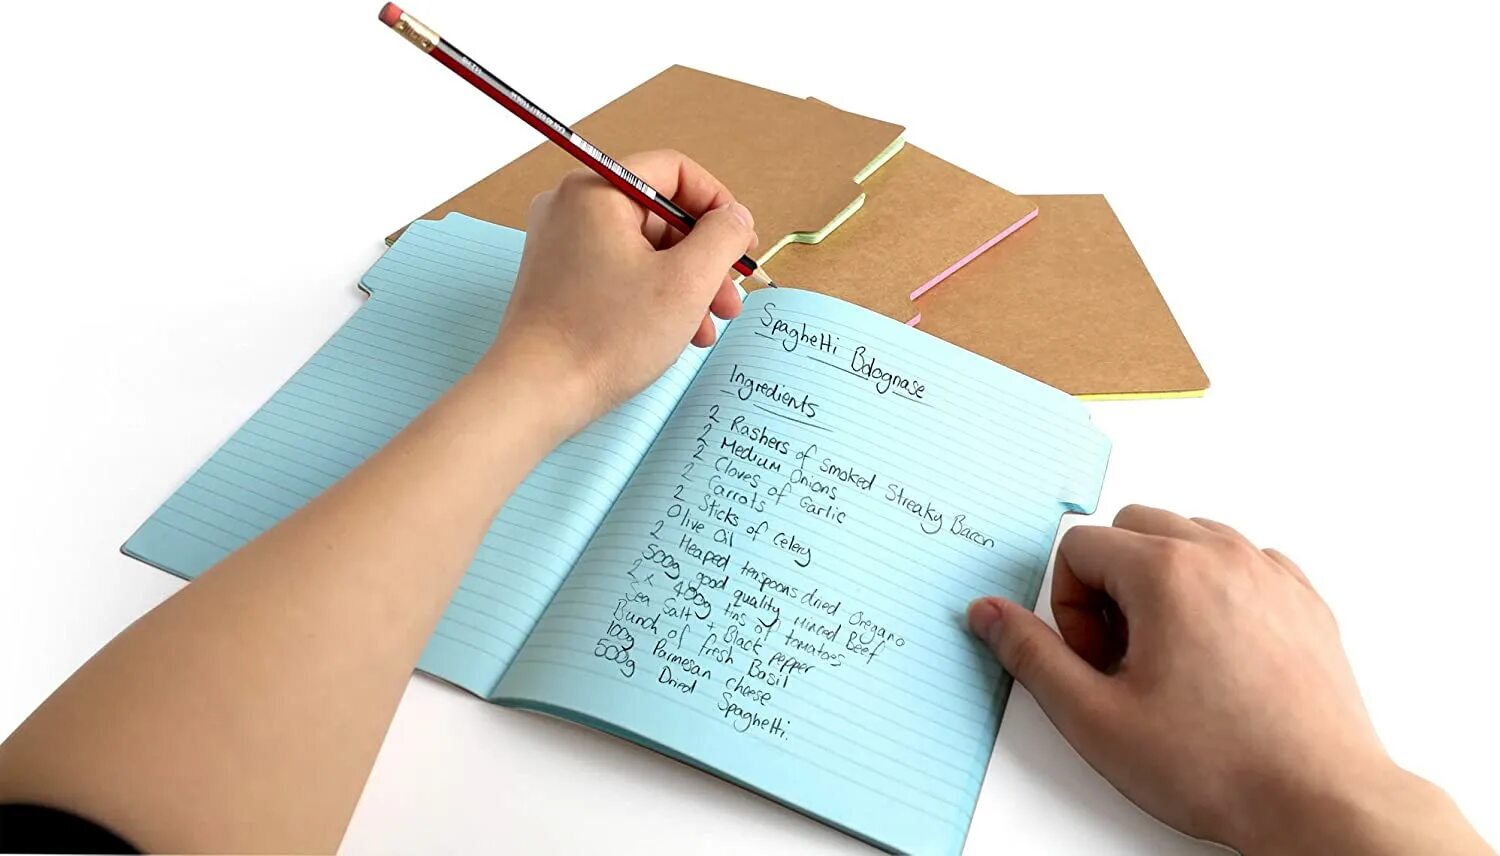 Spaghetti Bolognase
Ingredients
2 Rashers of Smoked Streaky Bacon
2 Medium Onions
2 Cloves of Garlic
2 Carrots
2 Sticks of Celery
Olive Oil
2 Heaped tenspoons dried Oregano
500g good quality Minced Beef
2 x 400g tins of tomatoes
Sea Salt + Black pepper
Bunch of fresh Basil
100g Parmesan cheese
500g Dried Spaghetti.